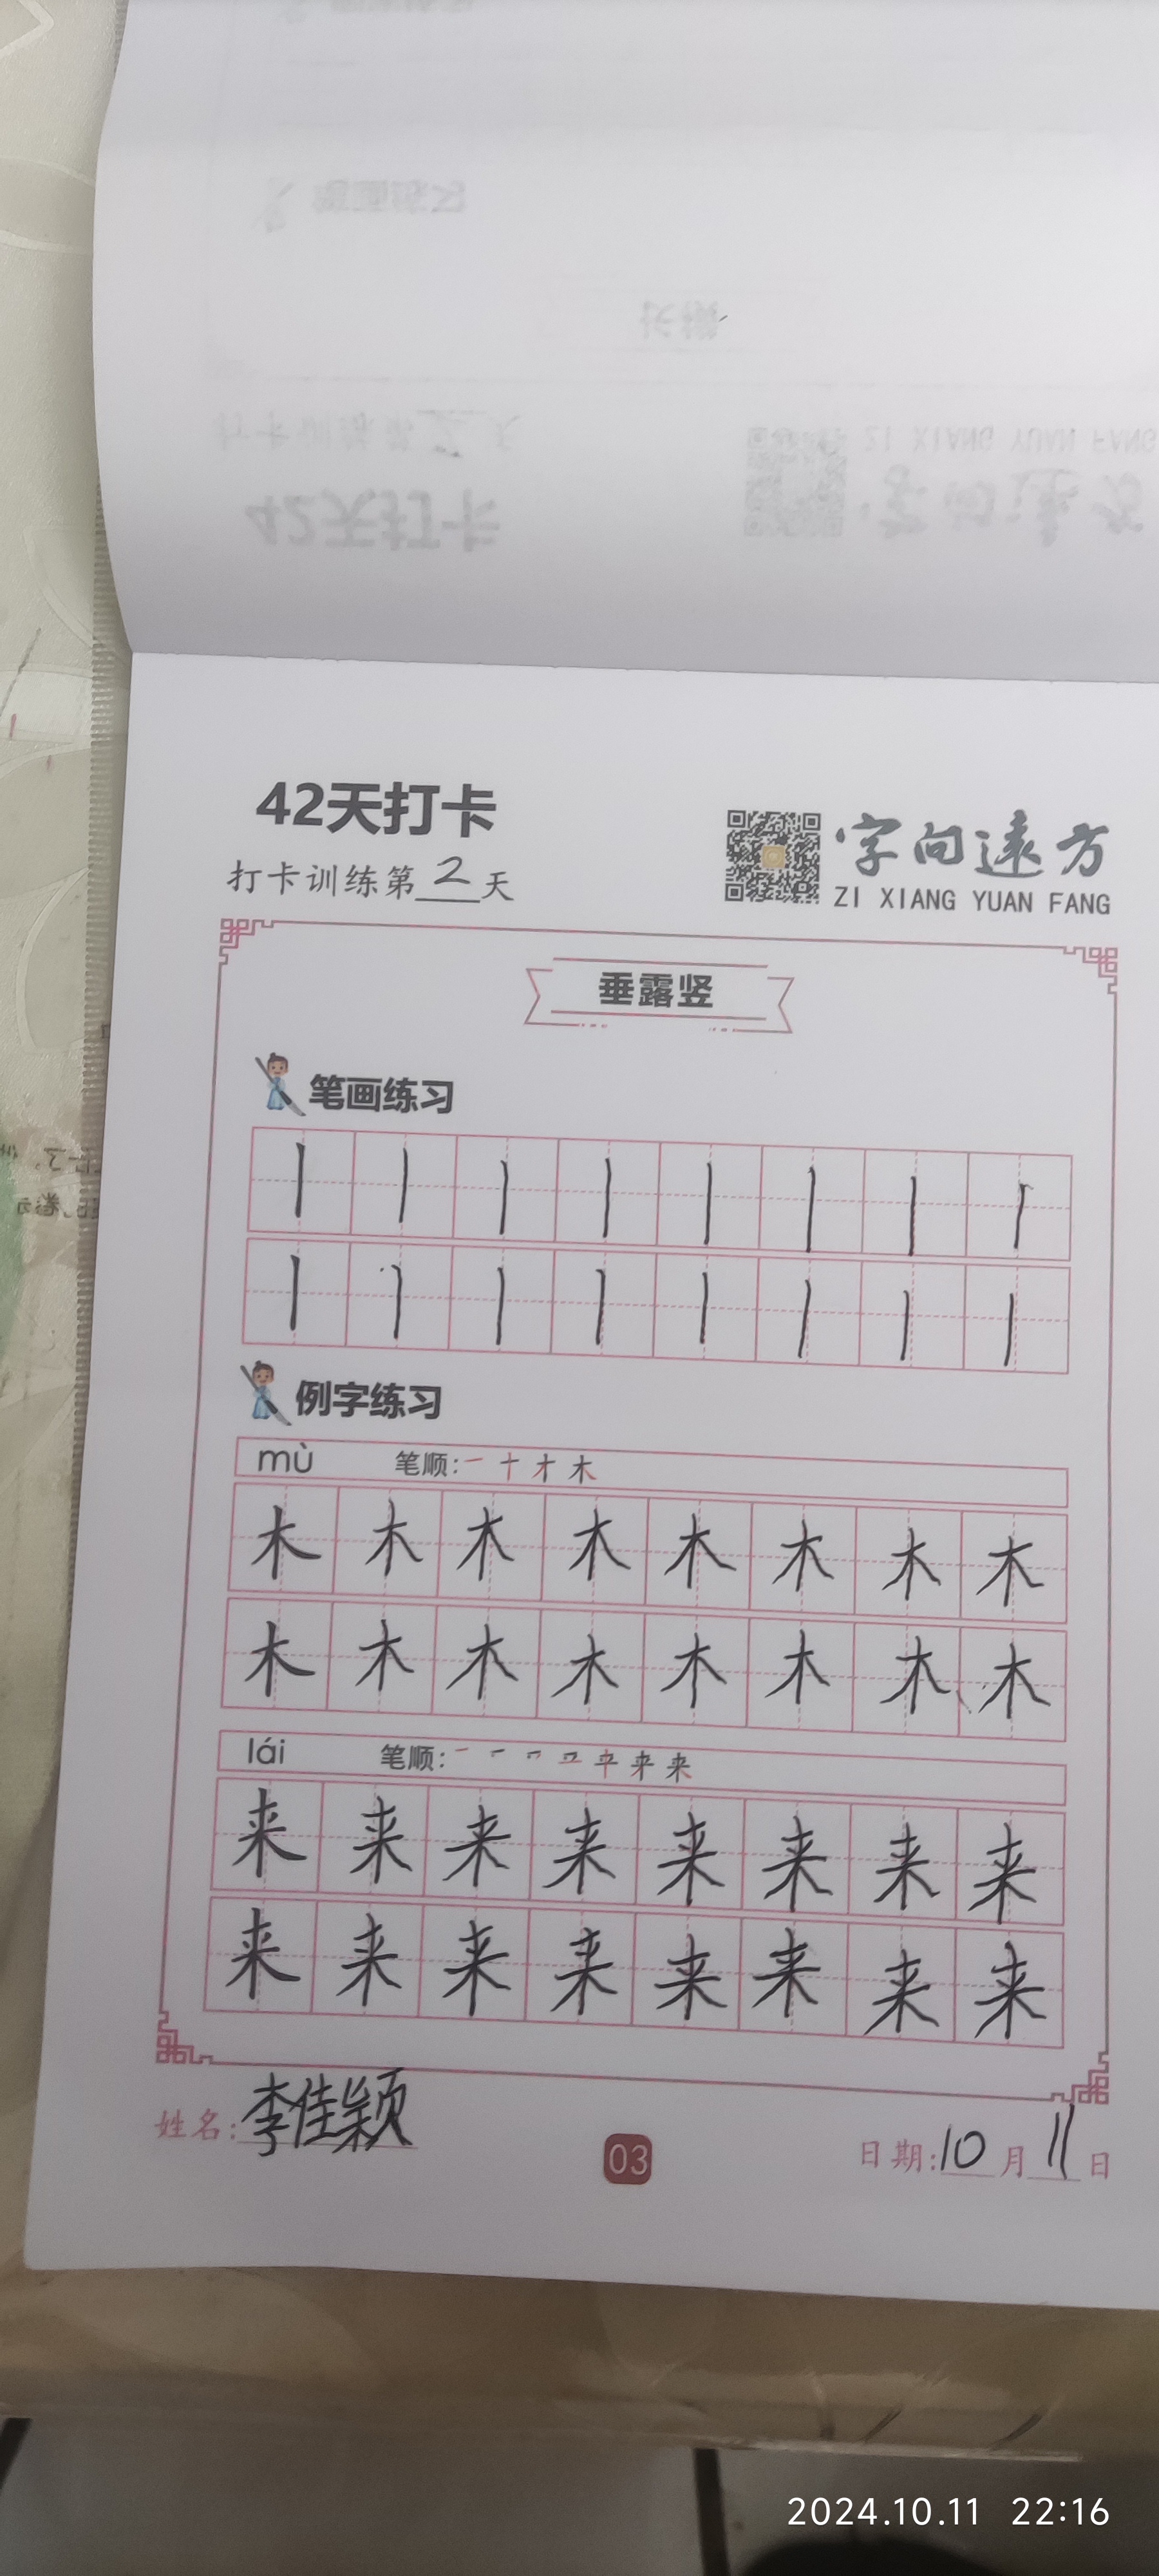 42天打卡
打卡训练第2天
字向远方
ZI XIANG YUAN FANG
垂露竖
笔画练习
丨 丨 丨 丨 丨 丨 丨 丨
丨 丨 丨 丨 丨 丨 丨 丨
例字练习
mù 笔顺:一 十 才 木
木 木 木 木 木 木 木 木
木 木 木 木 木 木 木 木
lái 笔顺:
来 来 来 来 来 来 来 来
来 来 来 来 来 来 来 来
姓名:李佳颖
03
日期:10月11日
2024.10.11 22:16